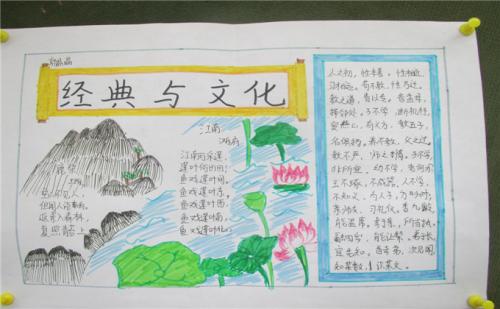 经典与文化
空山不见人，
但闻人语响。
返景入深林，
复照青苔上。
江南
江南可采莲，
莲叶何田田，
鱼戏莲叶间，
鱼戏莲叶东，
鱼戏莲叶西，
鱼戏莲叶南，
鱼戏莲叶北。
人之初，性本善。性相近，
习相远。苟不教，性乃迁。
教之道，贵以专。昔孟母，
择邻处。子不学，断机杼。
窦燕山，有义方。教五子，
名俱扬。养不教，父之过。
教不严，师之惰。子不学，
非所宜。幼不学，老何为。
玉不琢，不成器。人不学，
不知义。为人子，方少时。
亲师友，习礼仪。香九龄，
能温席。孝于亲，所当执。
融四岁，能让梨。弟于长，
宜先知。首孝弟，次见闻。
知某数，识某文。